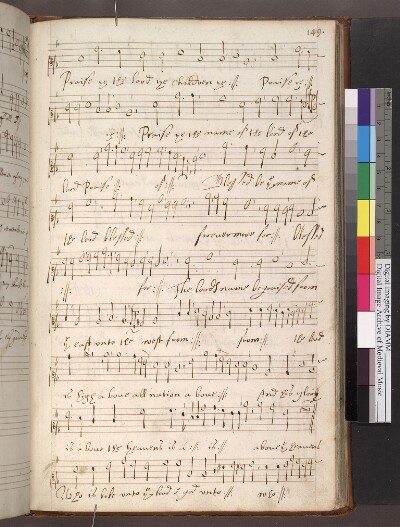 149.
Praise ye the lord ye children ye :||: Praise ye :||:
:||: Praise ye the name of the lord of the
lord Praise :||: of :||: Blessed be ye name of
the lord blessed :||: forevermore for :||: blessed
:||: for :||: The lords name be praised from
ye east unto the west from :||: from :||: the lord
is high above all nations above :||: And his glory
is above the heavens is :||: is :||: above ye heavens
Who is like unto ye lord or god unto :||: who :||:
Digital Imaging by DIAMM
Digital Image Archive of Medieval Music